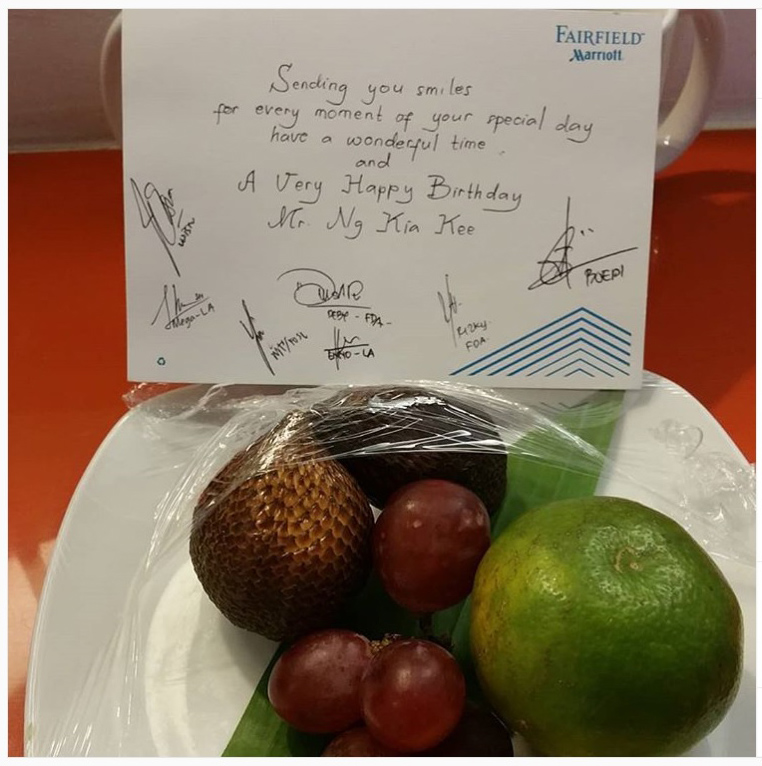 FAIRFIELD
Marriott
Sending you smiles
for every moment of your special day
have a wonderful time
and
A Very Happy Birthday
Mr. Ng Kia Kee
BOEDI
Mega-LA
FDA-
RIZKY
FDA
ENYO-LA